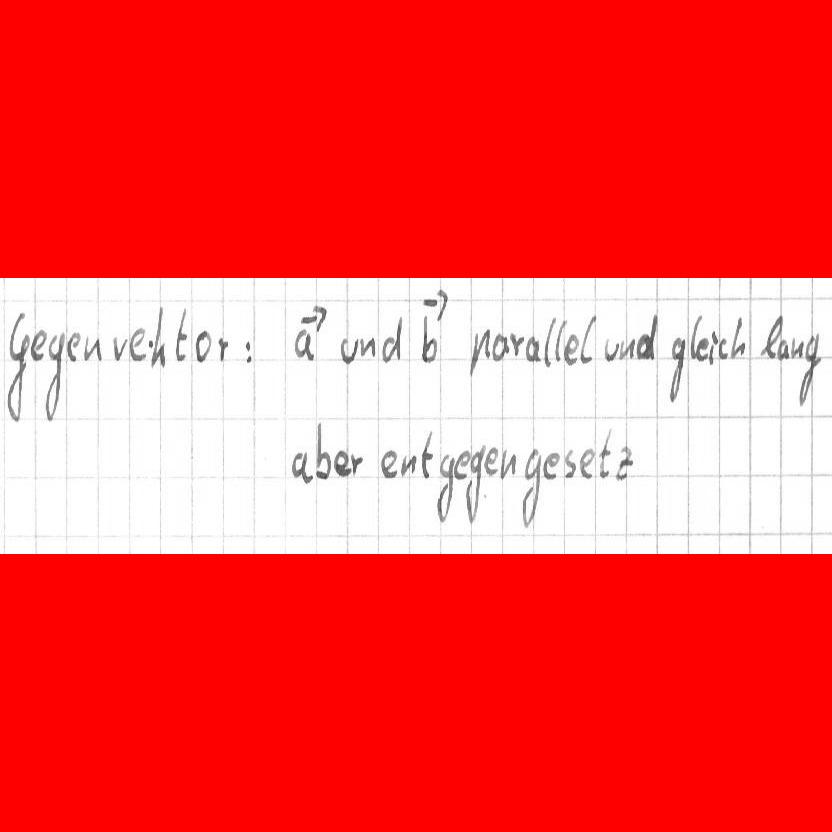 Gegenvektor: a⃗ und b⃗ parallel und gleich lang
aber entgegengesetz